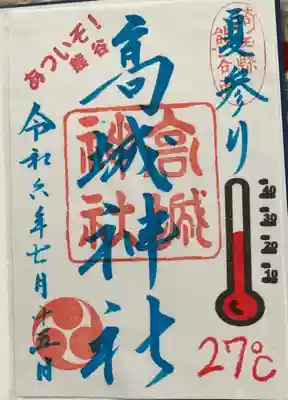 埼玉縣
熊谷市
夏参り
あついぞ!
熊谷
高城神社
高城
神社
令和六年七月十五日
40
30
20
10
27℃